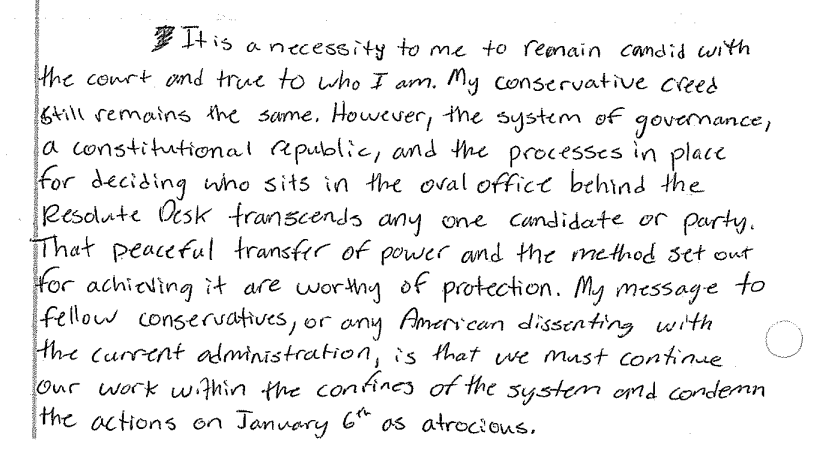 It is a necessity to me to remain candid with
the court and true to who I am. My conservative creed
still remains the same. However, the system of governance,
a constitutional republic, and the processes in place
for deciding who sits in the oval office behind the
Resolute Desk transcends any one candidate or party.
That peaceful transfer of power and the method set out
for achieving it are worthy of protection. My message to
fellow conservatives, or any American dissenting with
the current administration, is that we must continue
our work within the confines of the system and condemn
the actions on January 6th as atrocious.